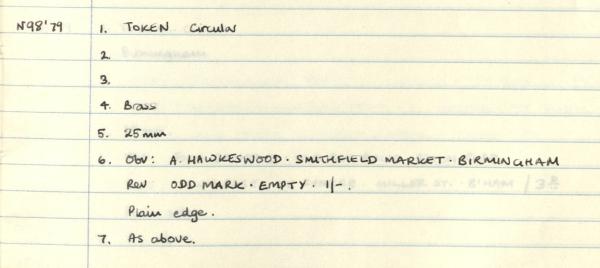 N98'79 1. TOKEN Circular
2.
3.
4. Brass
5. 25mm
6. Obv: A. HAWKESWOOD · SMITHFIELD MARKET · BIRMINGHAM
Rev ODD MARK · EMPTY · 1/-.
Plain edge.
7. As above.